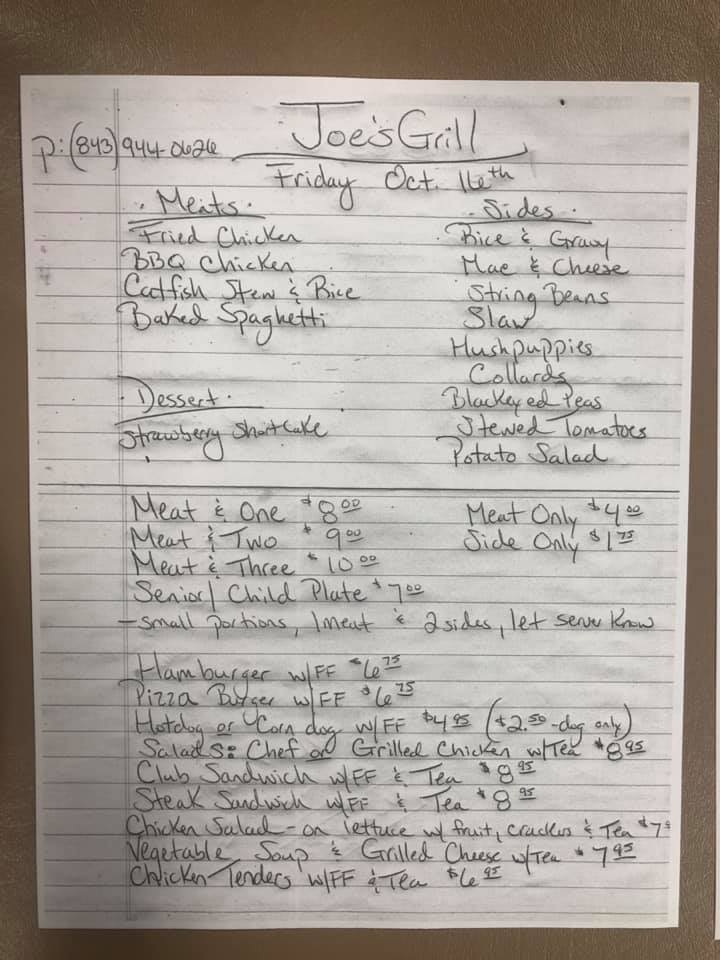 Joe's Grill
p: (843) 944-0626
Friday Oct. 16th
· Meats ·
Fried Chicken
BBQ Chicken
Catfish Stew & Rice
Baked Spaghetti
· Dessert ·
Strawberry Shortcake
· Sides ·
Rice & Gravy
Mac & Cheese
String Beans
Slaw
Hushpuppies
Collards
Blackeyed Peas
Stewed Tomatoes
Potato Salad
Meat & One $8.00
Meat & Two $9.00
Meat & Three $10.00
Senior/Child Plate $7.00
- small portions, 1 meat & 2 sides, let server know
Meat Only $4.00
Side Only $1.75
Hamburger w/FF $6.75
Pizza Burger w/FF $6.75
Hotdog or Corn dog w/FF $4.95 ($2.50 - dog only)
Salads: Chef or Grilled Chicken w/Tea $8.95
Club Sandwich w/FF & Tea $8.95
Steak Sandwich w/FF & Tea $8.95
Chicken Salad - on lettuce w/ fruit, crackers & Tea $7
Vegetable Soup & Grilled Cheese w/Tea $7.95
Chicken Tenders w/FF & Tea $6.95